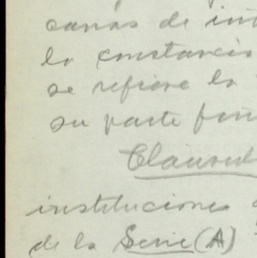 canas de in
la constancia
se refiere la
su parte fin
Clausul
instituciones
de la Serie (A)